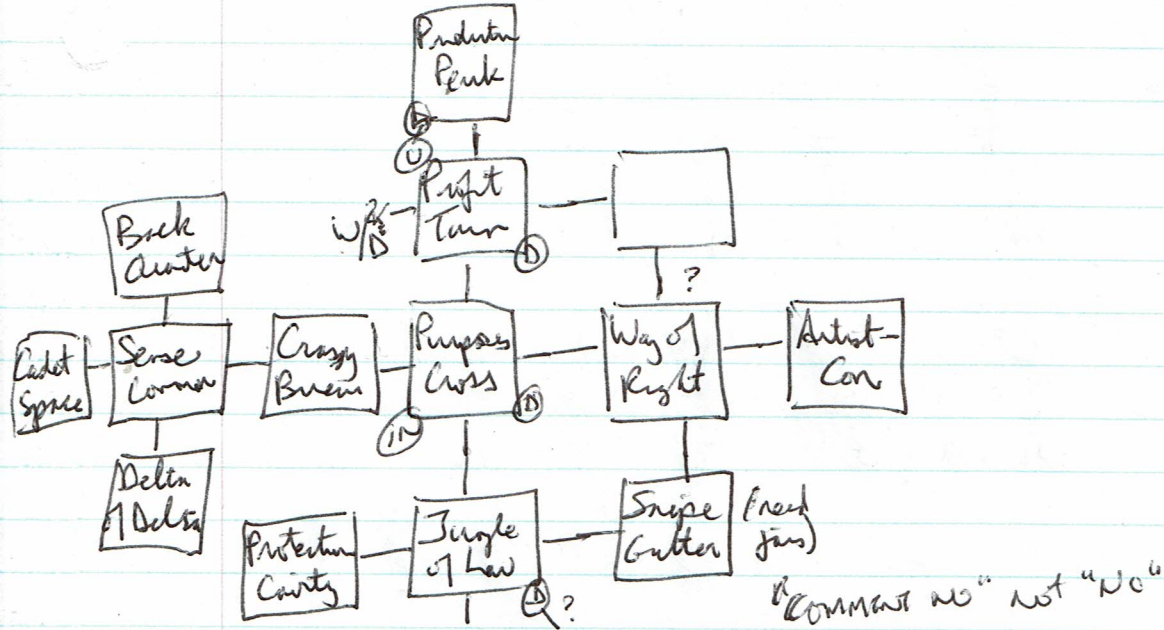 Production
Peak
D
U
Profit
W/
D
D
?
Back
Quarter
Cadet
Space
Sense
Common
Crazy
Bureau
Purposes
Cross
D
IN
Way of
Right
Artist-
Con
Delta
of Delta
Protection
Cavity
Jungle
of Law
D
?
Snipe
Gutter
(need
"COMMENT NO" NOT "NO"